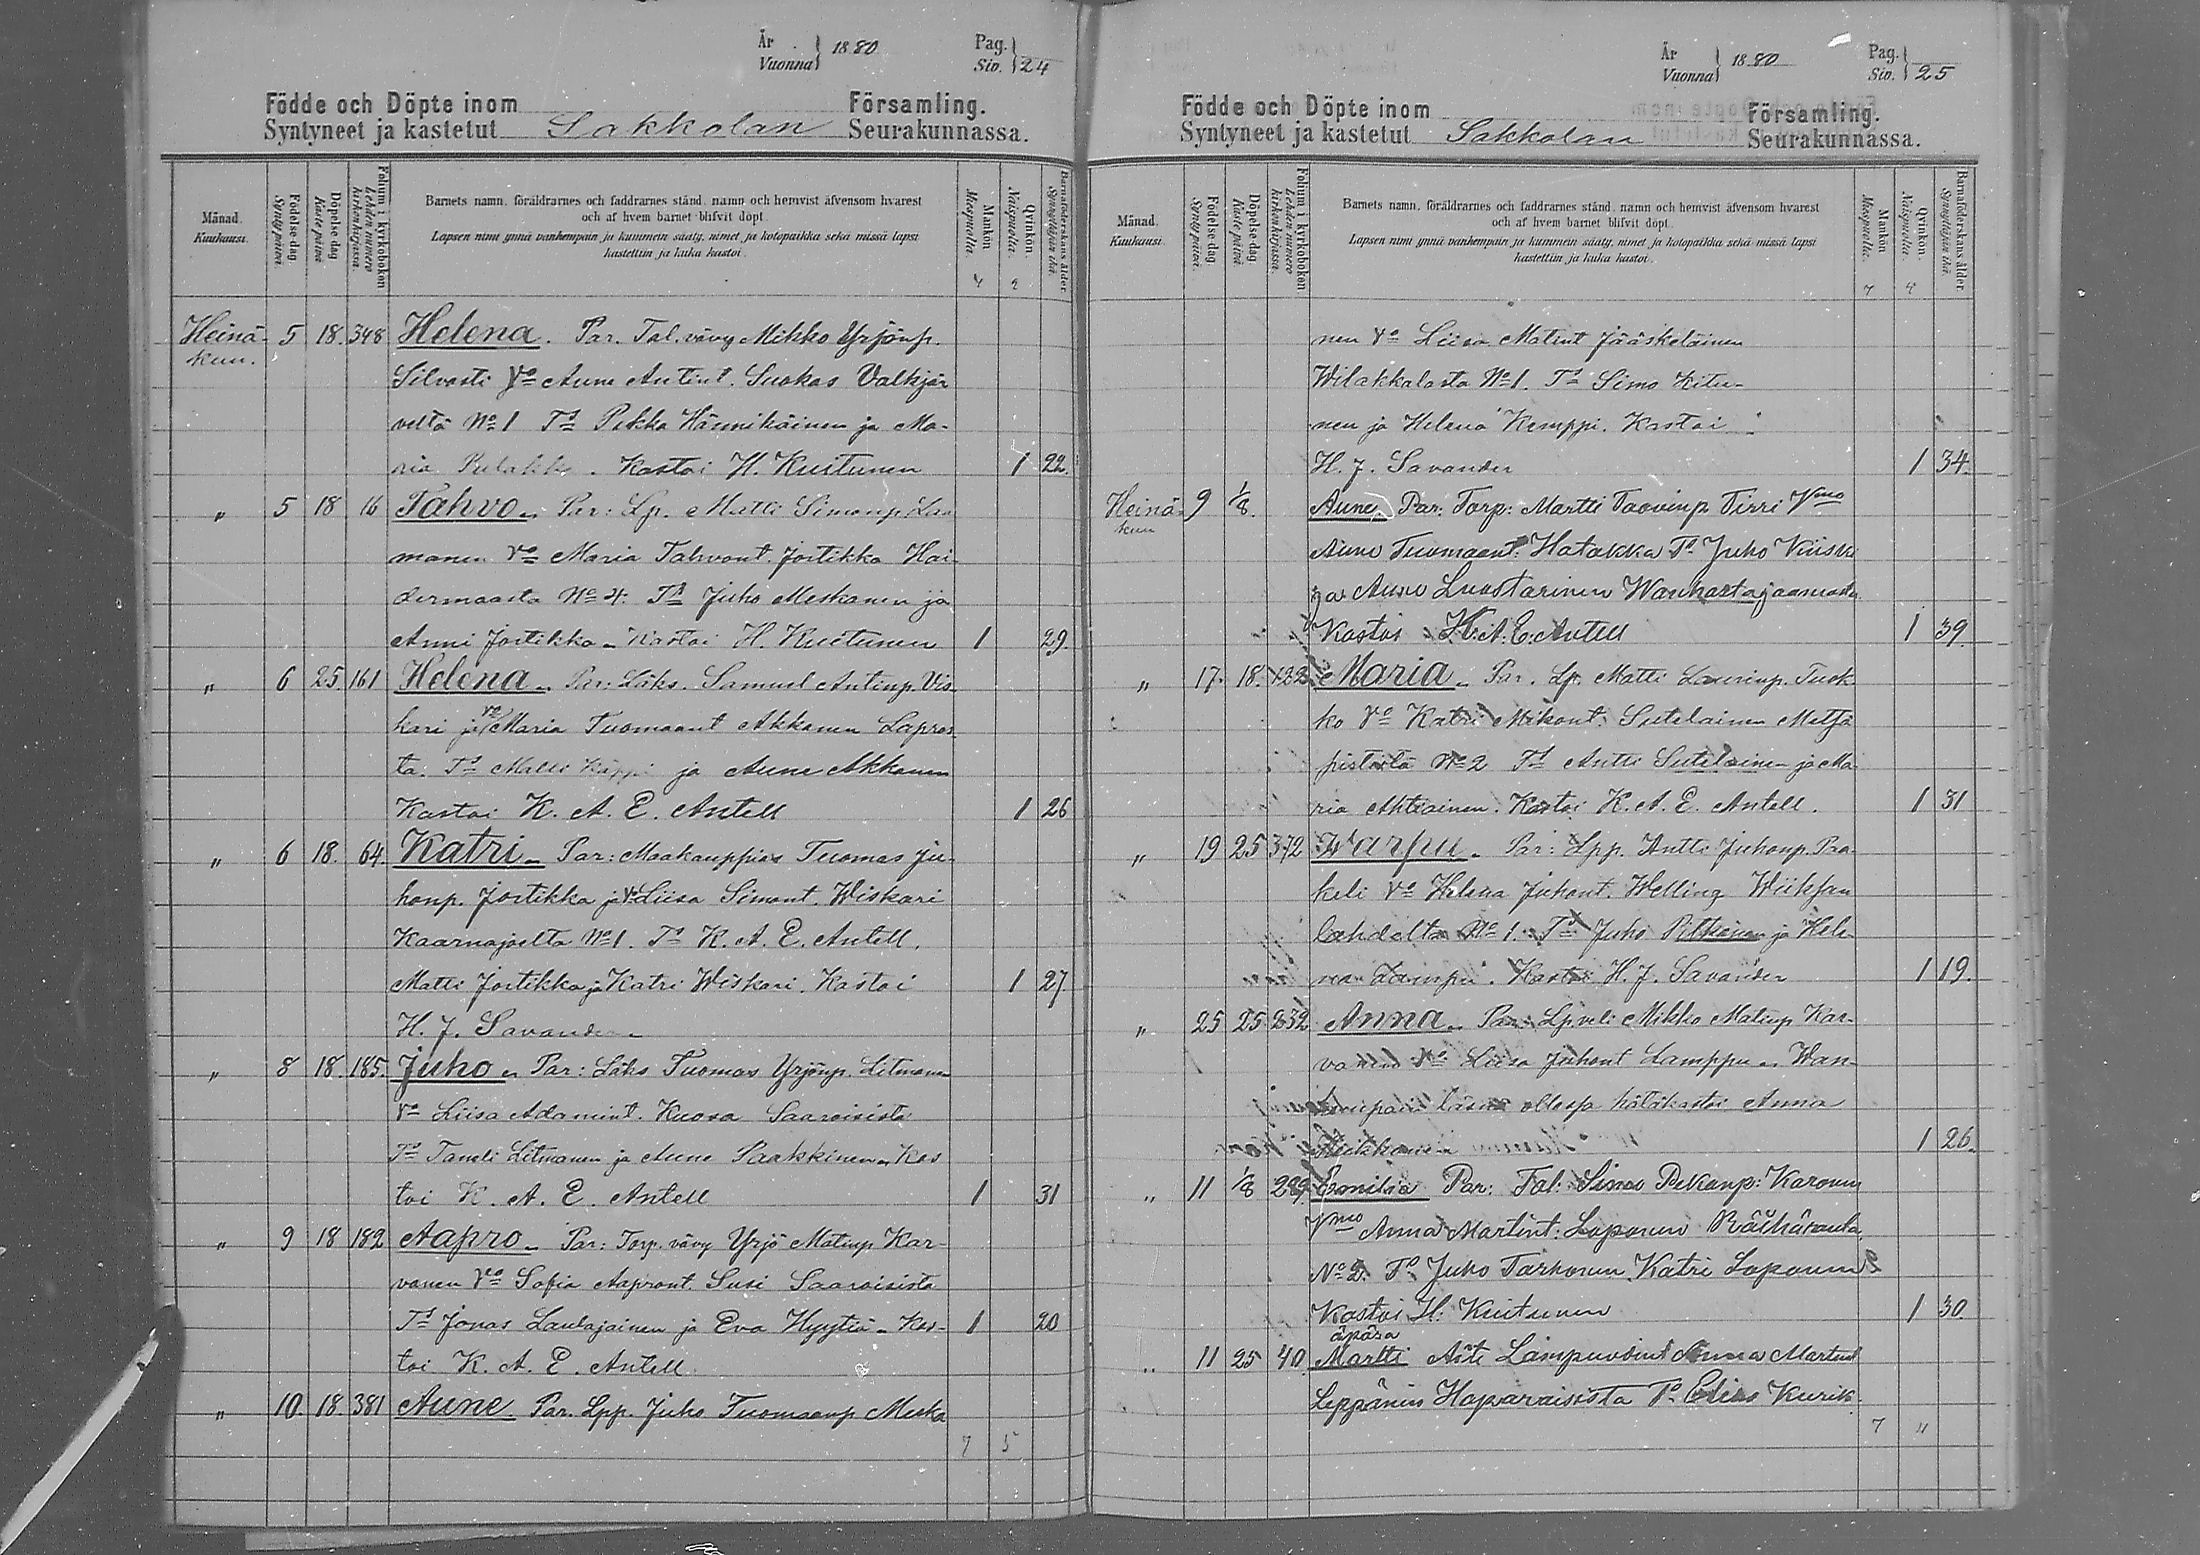 År
Vuonna } 1880
Pag.
Siv. } 24
Födde och Döpte inom Församling.
Syntyneet ja kastetut Sakkolan Seurakunnassa.
Månad.
Kuukausi.
Födelse dag
Synty päivä.
Döpelse dag
Kaste päivä
Folium i kyrkoboken
Lehden numero
kirkon kirjassa.
Barnets namn, föräldrarnes och faddrarnes stånd, namn och hemvist äfvensom hvarest
och af hvem barnet blifvit döpt.
Lapsen nimi ynnä vanhempain ja kummein sääty, nimet ja kotopaikka sekä missä lapsi
kastettiin ja kuka kastoi.
Mankön
Miespuolia.
Qvinkön.
Naispuolia.
Barnaföderskans ålder.
Synnyttäjän ikä.
Heinä- 5 18. 348 Helena. Par. Tal. vävy Mikko Yrjönp.
kun.
Silvasti Vo Aune Antint. Suokas Valkjär
veltä No 1 Td Pekka Hännikäinen ja Ma-
ria Kastoi H. Kuitunen 1 22.
" 5 18 16 Tahvo. Par: Lp. Matti Simonp. La
manen Vo Maria Tahvont. Jortikka Hai-
dermaasta No 4. Td Juho Meskanen ja
Anni Jortikka. Kastoi H. Kuitunen 1 29.
" 6 25 161 Helena. Par: Läks. Samuel Antinp. Vis
kari ja Vo Maria Tuomaant Akkanen Lapras
ta. Td Matti Käppi ja Aune Akkanen
Kastoi K. A. E. Antell 1 26
" 6 18. 64. Katri. Par: Maakauppias Tuomas Ju-
honp. Jortikka ja Vo Liisa Simont. Wiskari
Kaarnajoelta No 1. Td K. A. E. Antell,
Matti Jortikka ja Katri Wiskari. Kastoi 1 27.
H. J. Savander.
" 8 18. 185. Juho. Par: Läks Tuomas Yrjönp. Litmanen
Vo Liisa Adamint. Kuosa Saaroisista
Td Taneli Litmanen ja Aune Paakkinen. Kas
toi K. A. E. Antell 1 31
" 9 18 182 Aapro. Par: Torp. vävy Yrjö Matinp. Kar-
vanen Vo Sofia Aapront. Susi Saaroisista
Td Jonas Laulajainen ja Eva Hyytiä. Kas- 1 20
toi K. A. E. Antell
" 10. 18. 381 Aune. Par. Lpp. Juho Tuomaanp Meska
7 5
År
Vuonna } 1880
Pag.
Siv. } 25
Födde och Döpte inom Församling.
Syntyneet ja kastetut Sakkolan Seurakunnassa.
Månad.
Kuukausi.
Födelse dag
Synty päivä.
Döpelse dag.
Kaste päivä.
Folium i kyrkoboken
Lehden numero
kirkon kirjassa.
Barnets namn, föräldrarnes och faddrarnes stånd, namn och hemvist äfvensom hvarest
och af hvem barnet blifvit döpt.
Lapsen nimi ynnä vanhempain ja kummein sääty, nimet ja kotopaikka sekä missä lapsi
kastettiin ja kuka kastoi.
Mankön
Miespuolia.
Qvinkön.
Naispuolia.
Barnaföderskans ålder.
Synnyttäjän ikä.
7 4
nen Vo Liisa Matint Jääskeläinen
Wilakkalasta No 1. Td Simo Kitu-
nen ja Helena Kemppi. Kastoi
H. J. Savander 1 34.
Heinä- 9 1/8. Aune. Par: Torp: Martti Taavinp Tirri Vmo
kun
Aune Tuomaant: Hatakka Td Juho Kiiski
ja Aune Luostarinen Wanhastajaamasta
Kastoi K. A. E. Antell 1 39.
" 17. 18. 432 Maria. Par. Lp. Matti Laurinp. Tusk
ko Vo Katri Mikont. Sutelainen Metsä
pistiltä No 2 Td Antti Sutelainen ja Ma
ria Ahtiainen. Kastoi K. A. E. Antell. 1 31
" 19 25 372 Warpu. Par: Lpp. Antti Juhonp. Paa-
keli Vo Helena Juhont. Welling Wiiksan
lahdelta No 1. Td Juho Pitkänen ja Hele-
na Lamppu. Kastoi H. J. Savander 1 19.
" 25 25 232 Anna. Par: Lp veli Mikko Matinp Kar-
vanen Vo Liisa Juhont Lamppu. Wan-
hempain läsnä ollessa hätäkastoi Anna
1 26.
" 11 1/8 229 Emilia Par: Tal: Simo Pekanp: Karonen
Vmo Anna Martint: Loponen Räihärannta,
No 2. Td Juho Tarkonen, Katri Loponen
Kastoi H. Kuitunen 1 30.
äpärä
" 11 25 40 Martti Äite Lampuodint Anna Martint
Leppänen Haparaisista Td Elias Kurik
7 "